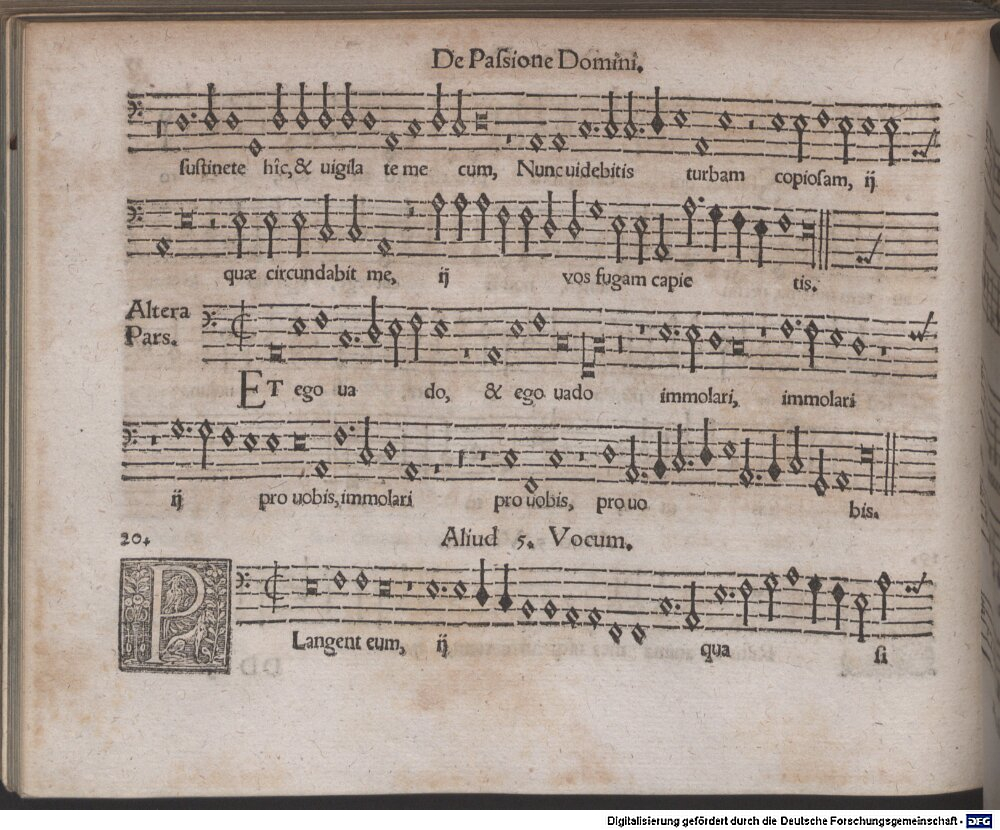 De Paſsione Domini.
ſuſtinete hîc, & uigila te me cum, Nunc uidebitis turbam copioſam, ij
quæ circundabit me, ij vos fugam capie tis.
Altera
Pars.
ET ego ua do, & ego uado immolari, immolari
ij pro uobis, immolari pro uobis, pro uo bis.
20. Aliud 5. Vocum.
PLangent eum, ij qua ſi
Digitalisierung gefördert durch die Deutsche Forschungsgemeinschaft - DFG